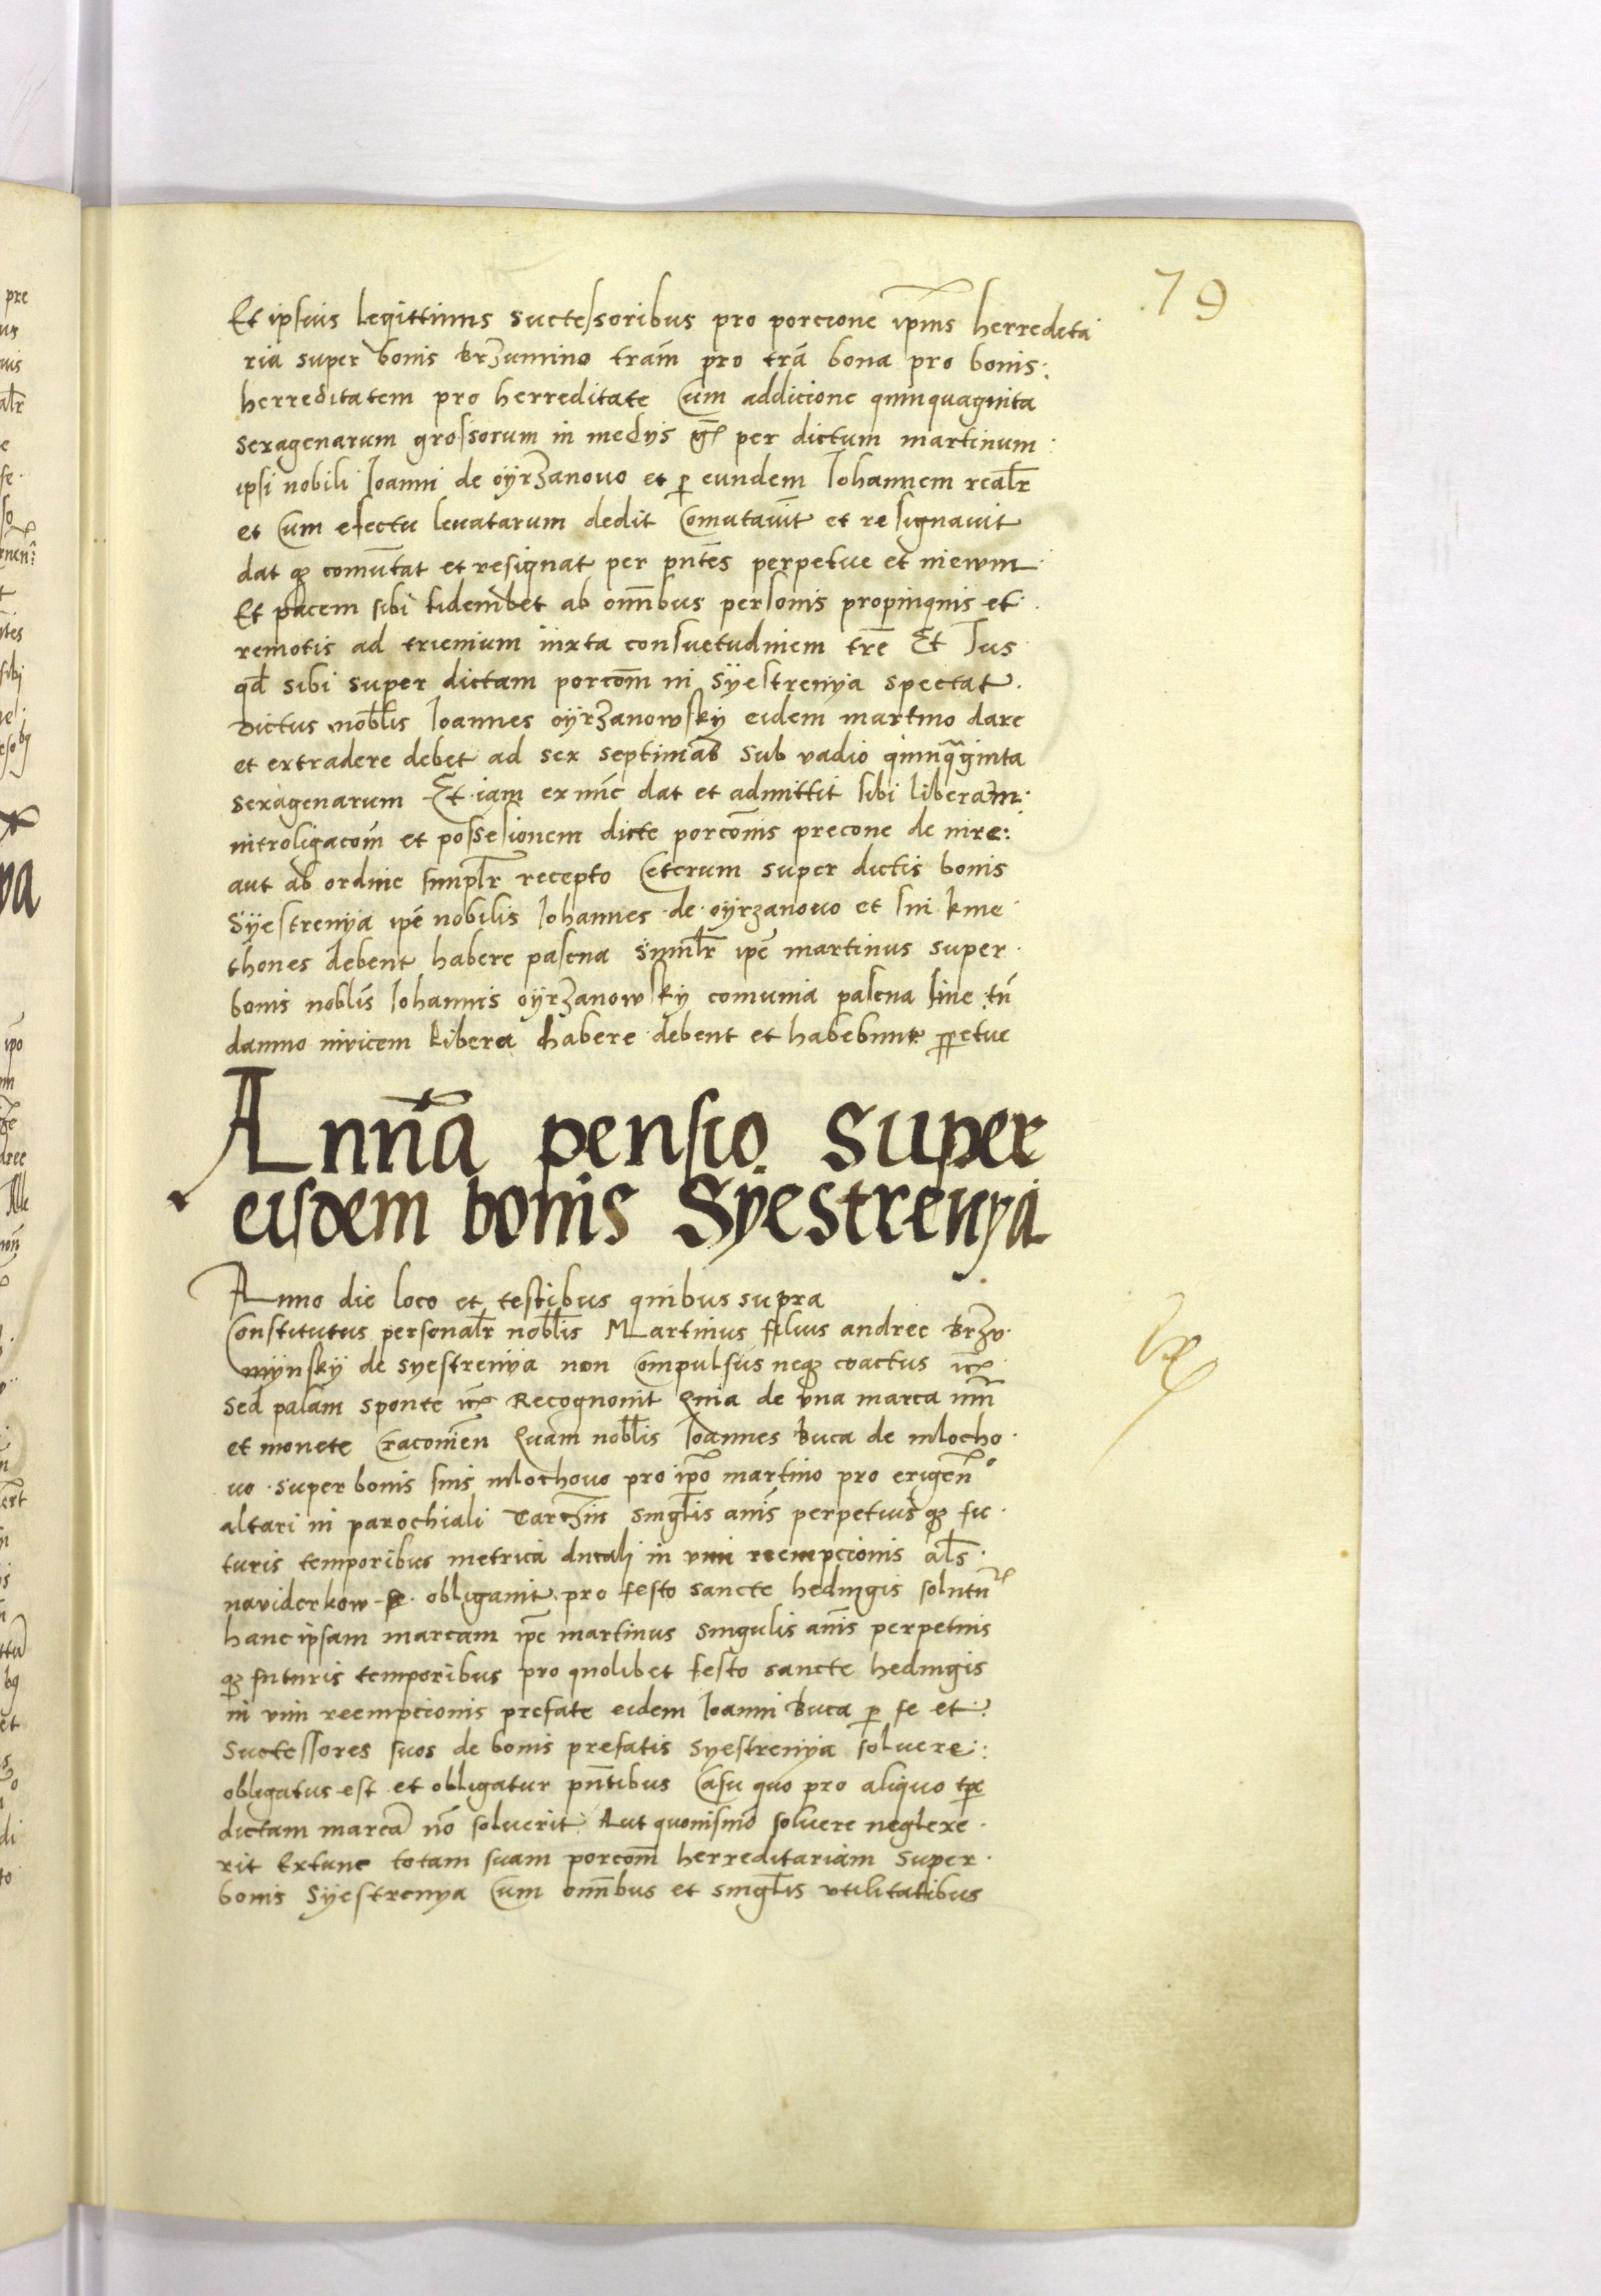 79
Et ipsius legittimis successoribus pro porcione ip̃ius herredeta
ria super bonis Brzumino trãm pro trã bona pro bonis:
herreditatem pro herreditate Cum addicione quinquaginta
sexagenarum grossorum in medijs per dictum martinum
ipsi nobili Ioanni de oÿrzanouo et ꝑ eundem Iohannem realr̃
et Cum efectu leuatarum dedit Comutauit et resignauit
dat qꝫ comũtat et resignat per pñtes perpetue et in ewm
Et pacem sibi tidembet ab om̃ibus personis propinquis et
remotis ad trienium iuxta consuetudinem trẽ Et Ius
qd̃ sibi super dictam porcom̃ in Sÿestrenÿa spectat.
Dictus nobl̃is Ioannes oÿrzanowskÿ eidem martino dare
et extradere debet ad sex septimas sub vadio quinq̃ginta
sexagenarum Et iam ex nũc dat et admittit sibi liberam
introligacom̃ et possesionem dicte porcom̃is precone de iure:
aut ab ordine simplr̃ recepto Ceterum super dictis bonis
Sÿestrenÿa ip̃e nobilis Iohannes de oÿrzanouo et sui kme
thones debent habere pascua Similr̃ ip̃e martinus super
bonis nobl̃is Iohannis oÿrzanowskÿ comunia pascua sine tñ
damno inuicem Libera habere debent et habebunt ꝑpetue
Annũa pensio super
eisdem bonis Syestrenya
Anno die loco et testibus quibus supra
Constitutus personalr̃ nobl̃is Martinus filius andree Brzv
mÿnskÿ de sÿestrenÿa non Compulsus neqꝫ coactus
sed palam sponte Recognouit Quia de vna marca
et monete Cracouien̄ Quam nobl̃is Ioannes Buca de mlocho
uo super bonis suis mlochouo pro ip̃o martino pro erigen̄º
altari in parochiali Tarczin singl̃is anis̃ perpetuis qꝫ fu
turis temporibus metrica ducali in vim reempcionis al̃s
naviderkow obligauit pro festo sancte hedwigis
hanc ipsam marcam ip̃e martinus singulis anis̃ perpetuis
qꝫ futuris temporibus pro quolibet festo sancte hedwigis
in vim reempcionis prefate eidem Ioanni Buca ꝑ se et
Successores suos de bonis prefatis Syestrenÿa soluere:
obligatus est et obligatur pñtibus Casu quo pro aliquo tpẽ
dictam marcã nõ soluerit Aut quouismõ soluere neglexe
rit Extunc totam suam porcom̃ herreditariam super
bonis Sÿestrenya Cum om̃ibus et singl̃is vtilitatibus